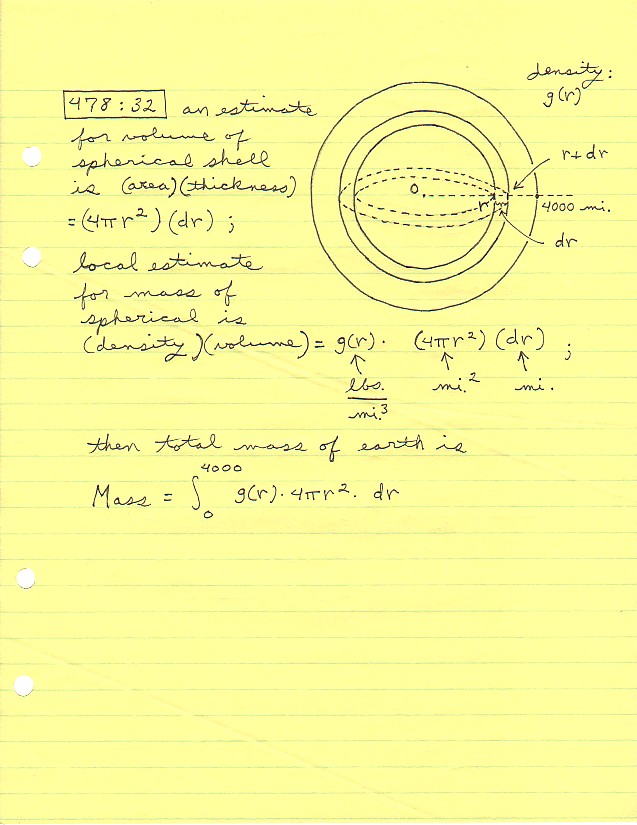 density:
g(r)
478:32 an estimate
for volume of
spherical shell
is (area)(thickness)
= (4πr²)(dr) ;
r+dr
O
r
4000 mi.
dr
local estimate
for mass of
spherical is
(density)(volume) = g(r) · (4πr²)(dr) ;
↑ ↑ ↑
lbs. mi.² mi.
mi.³
then total mass of earth is
Mass = ∫₀⁴⁰⁰⁰ g(r) · 4πr² · dr